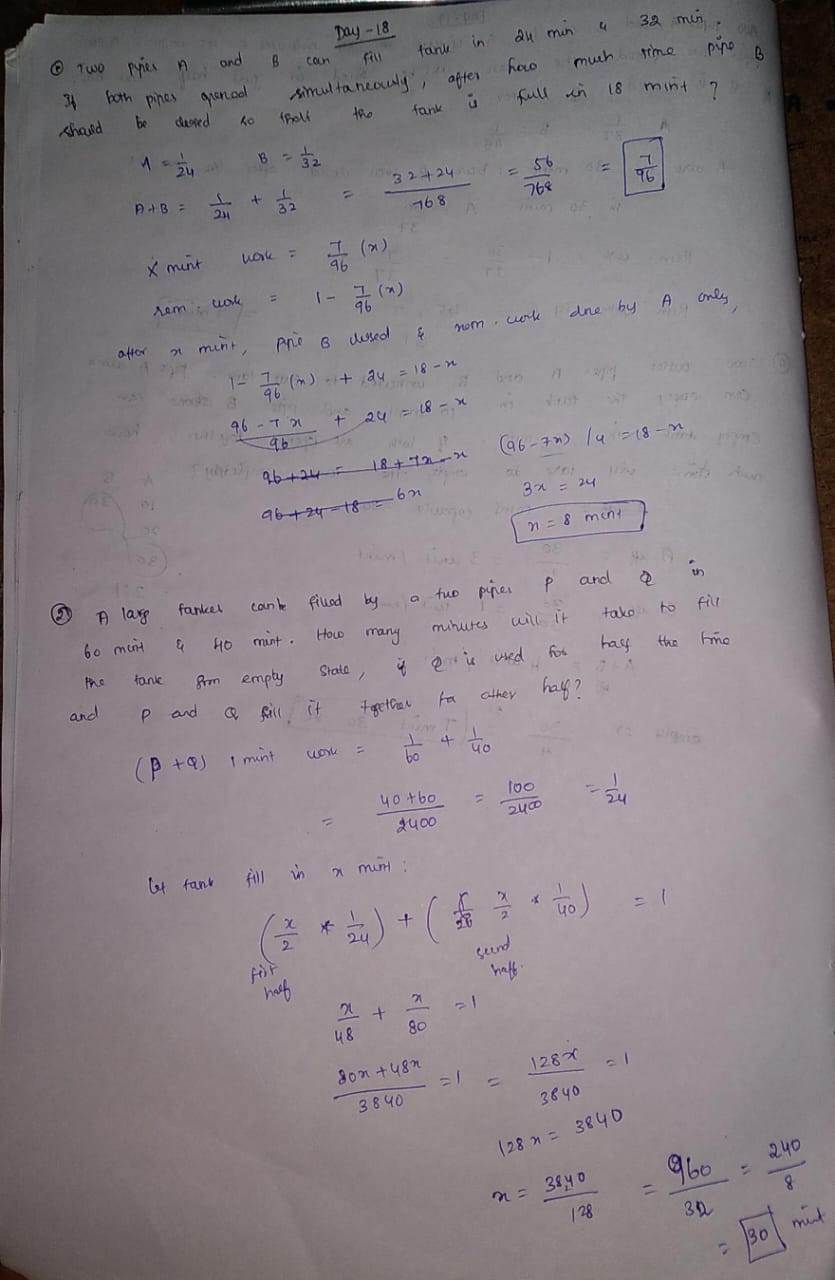 Day-18
① Two pipes A and B can fill tank in 24 min & 32 min.
If both pipes opened simultaneously, after how much time pipe B
should be closed so that the tank is full in 18 mint?
A = 1/24 B = 1/32
A+B = 1/24 + 1/32 = 32+24/768 = 56/768 = 7/96
x mint work = 7/96 (x)
rem. work = 1 - 7/96 (x)
after x mint, pipe B closed & rem. work done by A only,
1 - 7/96 (x) + 24 = 18-x
96-7x/96 + 24 = 18-x
96+24 = 18+7x-x (96-7x)/4 = 18-x
96+24-18 = 6x 3x = 24
x = 8 mint
② A large tanker can be filled by a two pipes P and Q in
60 mint & 40 mint. How many minutes will it take to fill
the tank from empty state, if Q is used for half the time
and P and Q fill it together for other half?
(P+Q) 1 mint work = 1/60 + 1/40
= 40+60/2400 = 100/2400 = 1/24
let tank fill in x mint:
(x/2 * 1/24) + (x/2 * 1/40) = 1
first half second half.
x/48 + x/80 = 1
80x+48x/3840 = 1 = 128x/3840 = 1
128x = 3840
x = 3840/128 = 960/32 = 240/8
= 30 mint